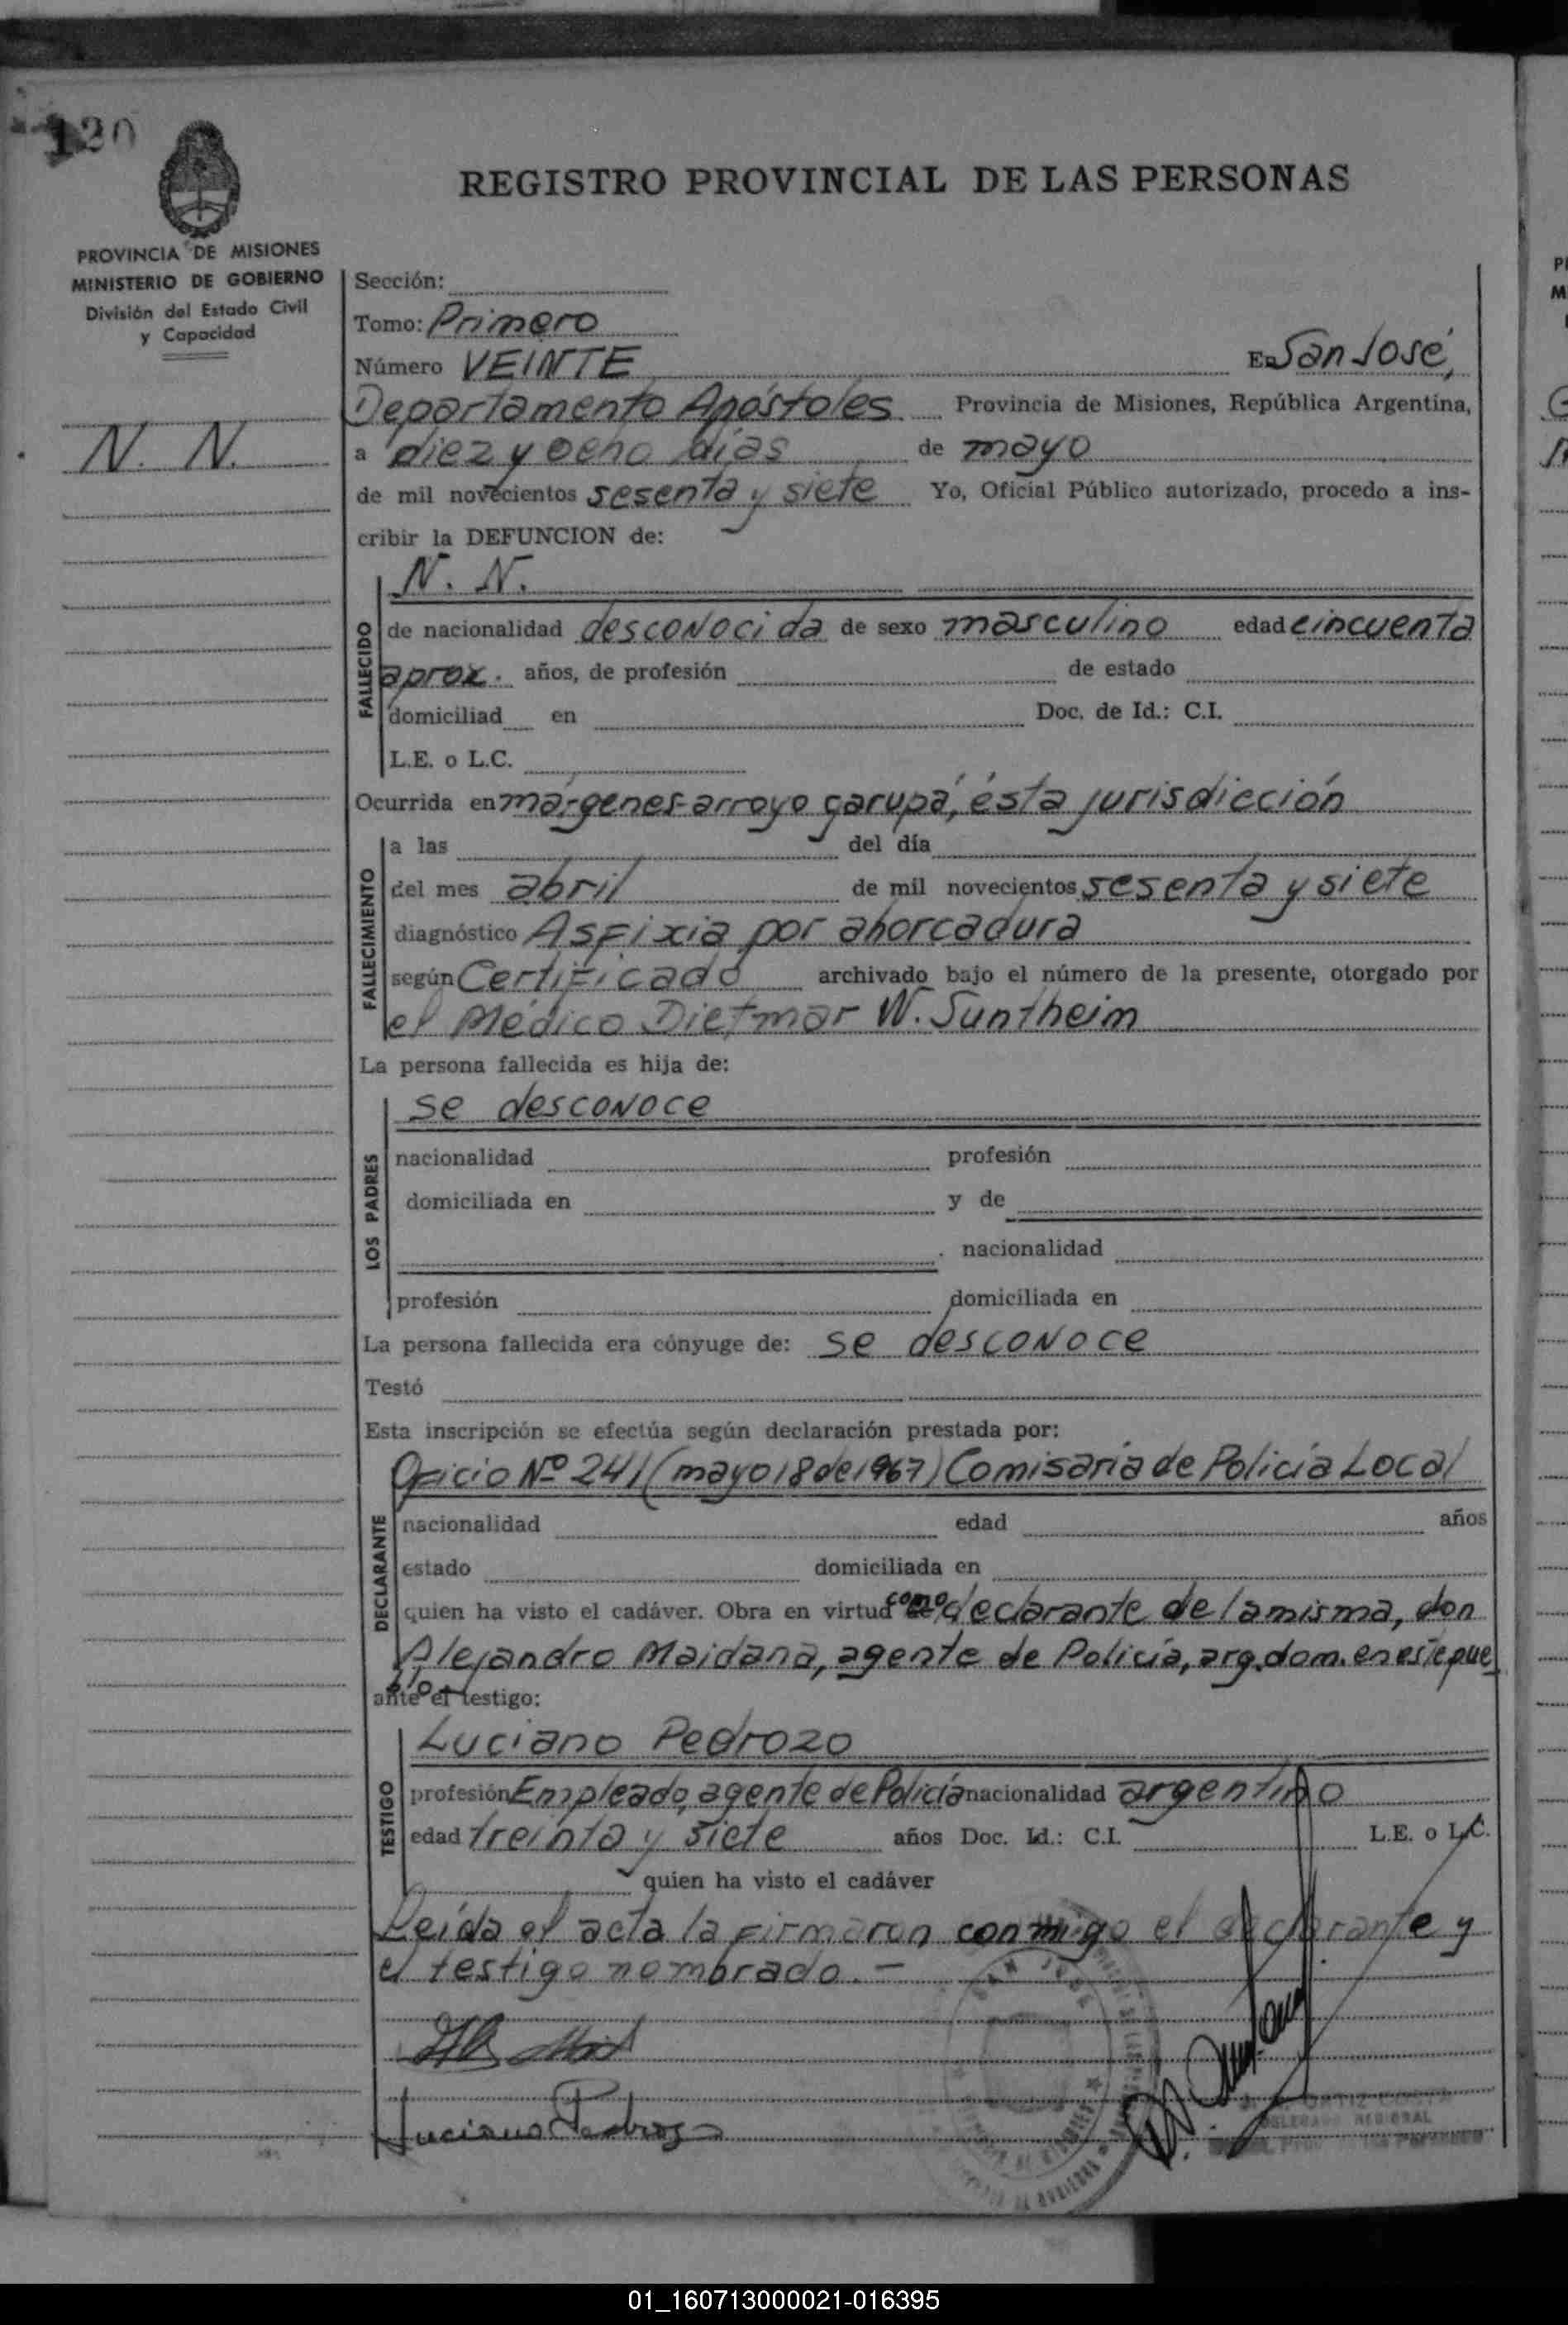 120
REGISTRO PROVINCIAL DE LAS PERSONAS
PROVINCIA DE MISIONES
MINISTERIO DE GOBIERNO
División del Estado Civil
y Capacidad
N. N.
Sección:
Tomo: Primero
Número VEINTE En San José,
Departamento Apóstoles Provincia de Misiones, República Argentina,
a diez y ocho días de mayo
de mil novecientos sesenta y siete Yo, Oficial Público autorizado, procedo a ins-
cribir la DEFUNCION de:
N. N.
FALLECIDO
de nacionalidad desconocida de sexo masculino edad cincuenta
aprox. años, de profesión de estado
domiciliad en Doc. de Id.: C.I.
L.E. o L.C.
Ocurrida en márgenes arroyo garupá, ésta jurisdicción
FALLECIMIENTO
a las del día
del mes abril de mil novecientos sesenta y siete
diagnóstico Asfixia por ahorcadura
según Certificado archivado bajo el número de la presente, otorgado por
el Médico Dietmar W. Suntheim
La persona fallecida es hija de:
se desconoce
LOS PADRES
nacionalidad profesión
domiciliada en y de
nacionalidad
profesión domiciliada en
La persona fallecida era cónyuge de: se desconoce
Testó
Esta inscripción se efectúa según declaración prestada por:
Oficio Nº 241 (mayo 18 de 1967) Comisaría de Policía Local
DECLARANTE
nacionalidad edad años
estado domiciliada en
quien ha visto el cadáver. Obra en virtud como declarante de la misma, don
Alejandro Maidana, agente de Policía, arg. dom. en este pue
blo
ante el testigo:
Luciano Pedrozo
TESTIGO
profesión Empleado, agente de Policía nacionalidad argentino
edad treinta y siete años Doc. Id.: C.I. L.E. o L.C.
quien ha visto el cadáver
Leída el acta la firmaron conmigo el declarante y
el testigo nombrado.-
Luciano Pedrozo
SAN JOSE
DELEGADO REGIONAL
01_160713000021-016395